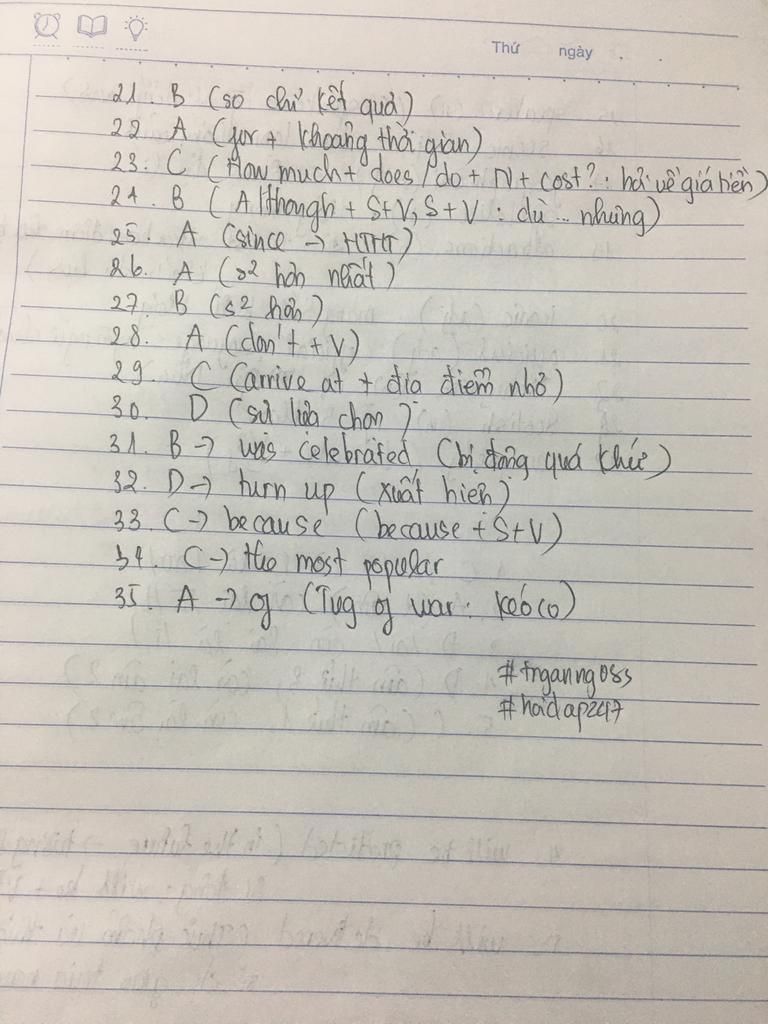 Thứ ngày . .
21. B (so chỉ kết quả)
22. A (for + khoảng thời gian)
23. C (How much + does / do + N + cost? : hỏi về giá tiền)
24. B (Although + S+V, S+V : dù ... nhưng)
25. A (since → HTHT)
26. A (s² hơn nhất)
27. B (s² hơn)
28. A (don't + V)
29. C (arrive at + địa điểm nhỏ)
30. D (sự lựa chọn)
31. B → was celebrated (bị động quá khứ)
32. D → turn up (xuất hiện)
33. C → because (because + S+V)
34. C → the most popular
35. A → of (Tug of war : kéo co)
#trganng083
#hoidap247